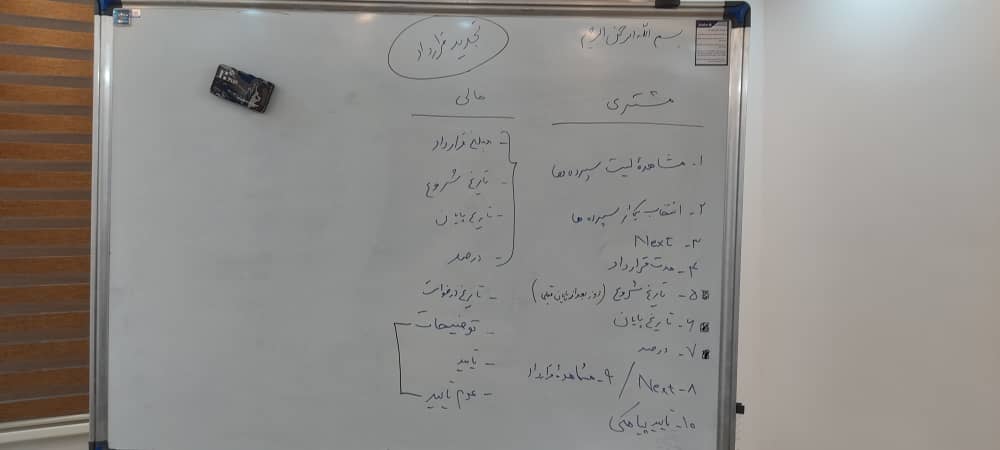 بسم الله الرحمن الرحیم
تجدید قرارداد
مشتری
۱- مشاهدهٔ لیست سپرده ها
۲- انتخاب یکی از سپرده ها
۳- Next
۴- مدت قرارداد
۵- تاریخ شروع (روز بعد از پایان قبلی)
۶- تاریخ پایان
۷- درصد
۸- Next / ۹- مشاهدهٔ قرارداد
۱۰- تایید پیامکی
مالی
- مبلغ قرارداد
- تاریخ شروع
- تاریخ پایان
- درصد
- تاریخ درخواست
- توضیحات
- تایید
- عدم تایید